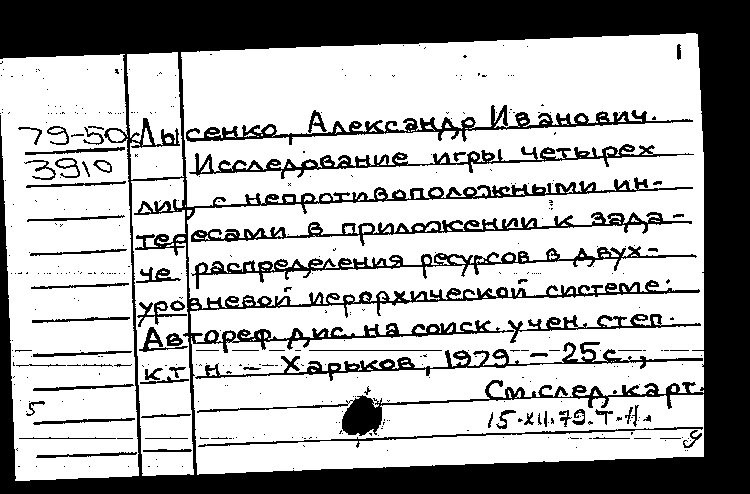 1
79-50к Лысенко, Александр Иванович.
3910 Исследование игры четырех
лиц с непротивоположными ин-
тересами в приложении к зада-
че распределения ресурсов в двух-
уровневой иерархической системе:
Автореф. дис. на соиск. учен. степ.
к.т н. – Харьков, 1979. – 25 с.,
См. след. карт.
5 15.XII.79. Т.Н.
9